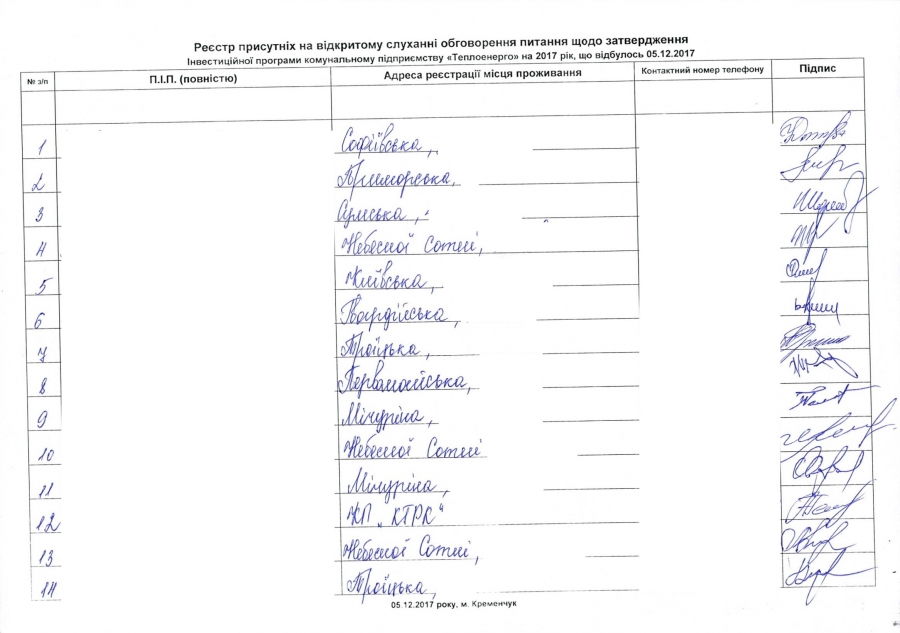 Реєстр присутніх на відкритому слуханні обговорення питання щодо затвердження
Інвестиційної програми комунальному підприємству «Теплоенерго» на 2017 рік, що відбулось 05.12.2017
№ з/п П.І.П. (повністю) Адреса реєстрації місця проживання Контактний номер телефону Підпис
1 Софіївська,
2 Приморська,
3 Сумська,
4 Небесної Сотні,
5 Київська,
6 Гвардійська,
7 Троїцька,
8 Первомайська,
9 Мічуріна,
10 Небесної Сотні
11 Мічуріна,
12 КП „КТРК“
13 Небесної Сотні,
14 Троїцька,
05.12.2017 року, м. Кременчук